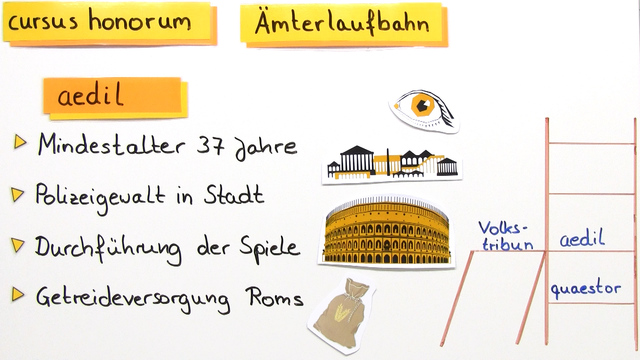 cursus honorum
Ämterlaufbahn
aedil
Mindestalter 37 Jahre
Polizeigewalt in Stadt
Durchführung der Spiele
Getreideversorgung Roms
Volks-
tribun
aedil
quaestor